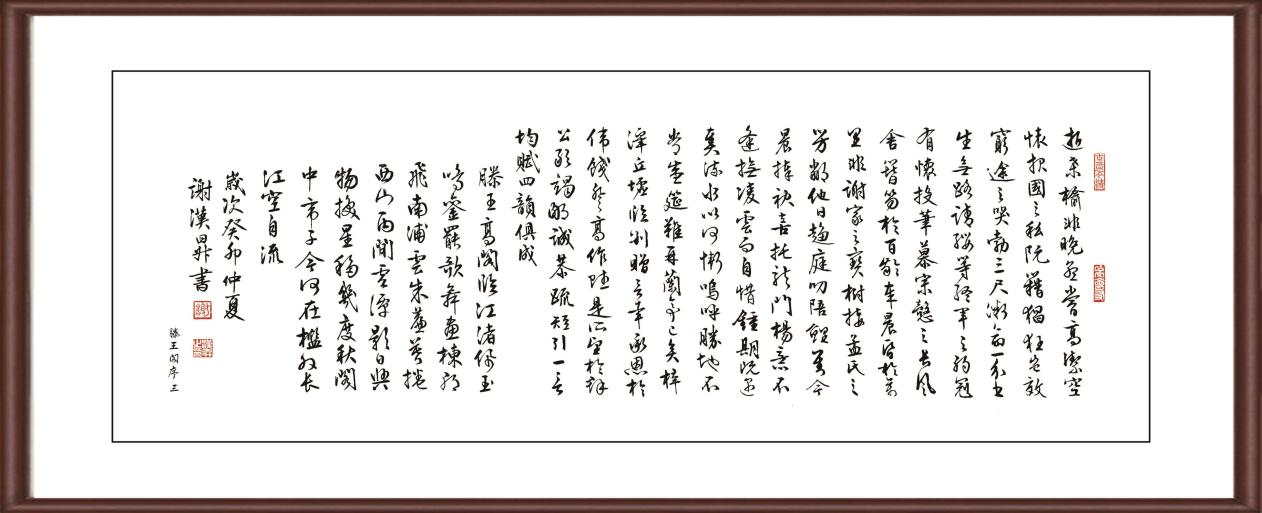 逝桑榆非晚孟嘗高潔空
懷報國之私阮籍猖狂豈效
窮途之哭勃三尺微命一介書
生無路請纓等終軍之弱冠
有懷投筆慕宗慤之長風
舍簪笏於百齡奉晨昏於萬
里非謝家之寶樹接孟氏之
芳鄰他日趨庭叨陪鯉對今
晨捧袂喜托龍門楊意不
逢撫凌雲而自惜鍾期既遇
奏流水以何慚嗚呼勝地不
常盛筵難再蘭亭已矣梓
澤丘墟臨別贈言幸承恩於
偉餞登高作賦是所望於群
公敢竭鄙誠恭疏短引一言
均賦四韻俱成
滕王高閣臨江渚佩玉
鳴鑾罷歌舞畫棟朝
飛南浦雲朱簾暮捲
西山雨閒雲潭影日
物換星移幾度秋閣
中帝子今何在檻外長
江空自流
歲次癸卯仲夏
謝漢昇書
滕王閣序三